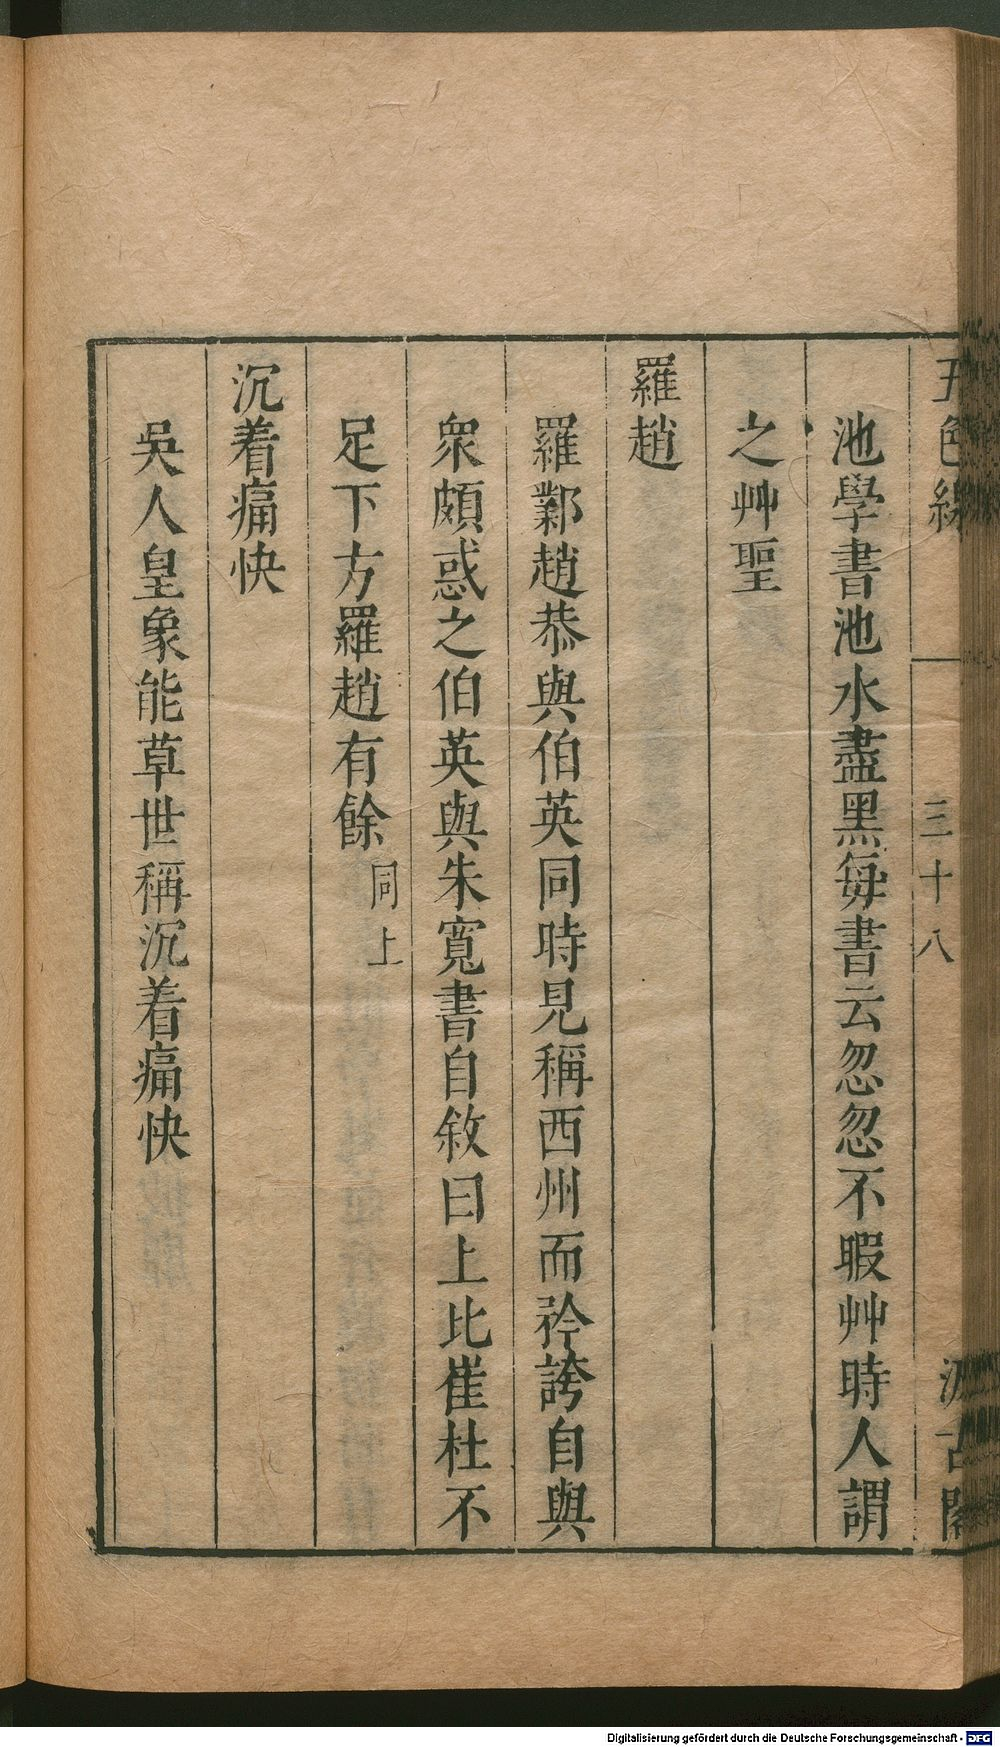 五色線
三十八
汲古閣
池學書池水盡黑每書云忽忽不暇艸時人謂
之艸聖
羅趙
羅鄴趙恭與伯英同時見稱西州而矜誇自與
衆頗惑之伯英與朱寬書自敘曰上比崔杜不
足下方羅趙有餘同上
沉着痛快
吳人皇象能草世稱沉着痛快
Digitalisierung gefördert durch die Deutsche Forschungsgemeinschaft - DFG